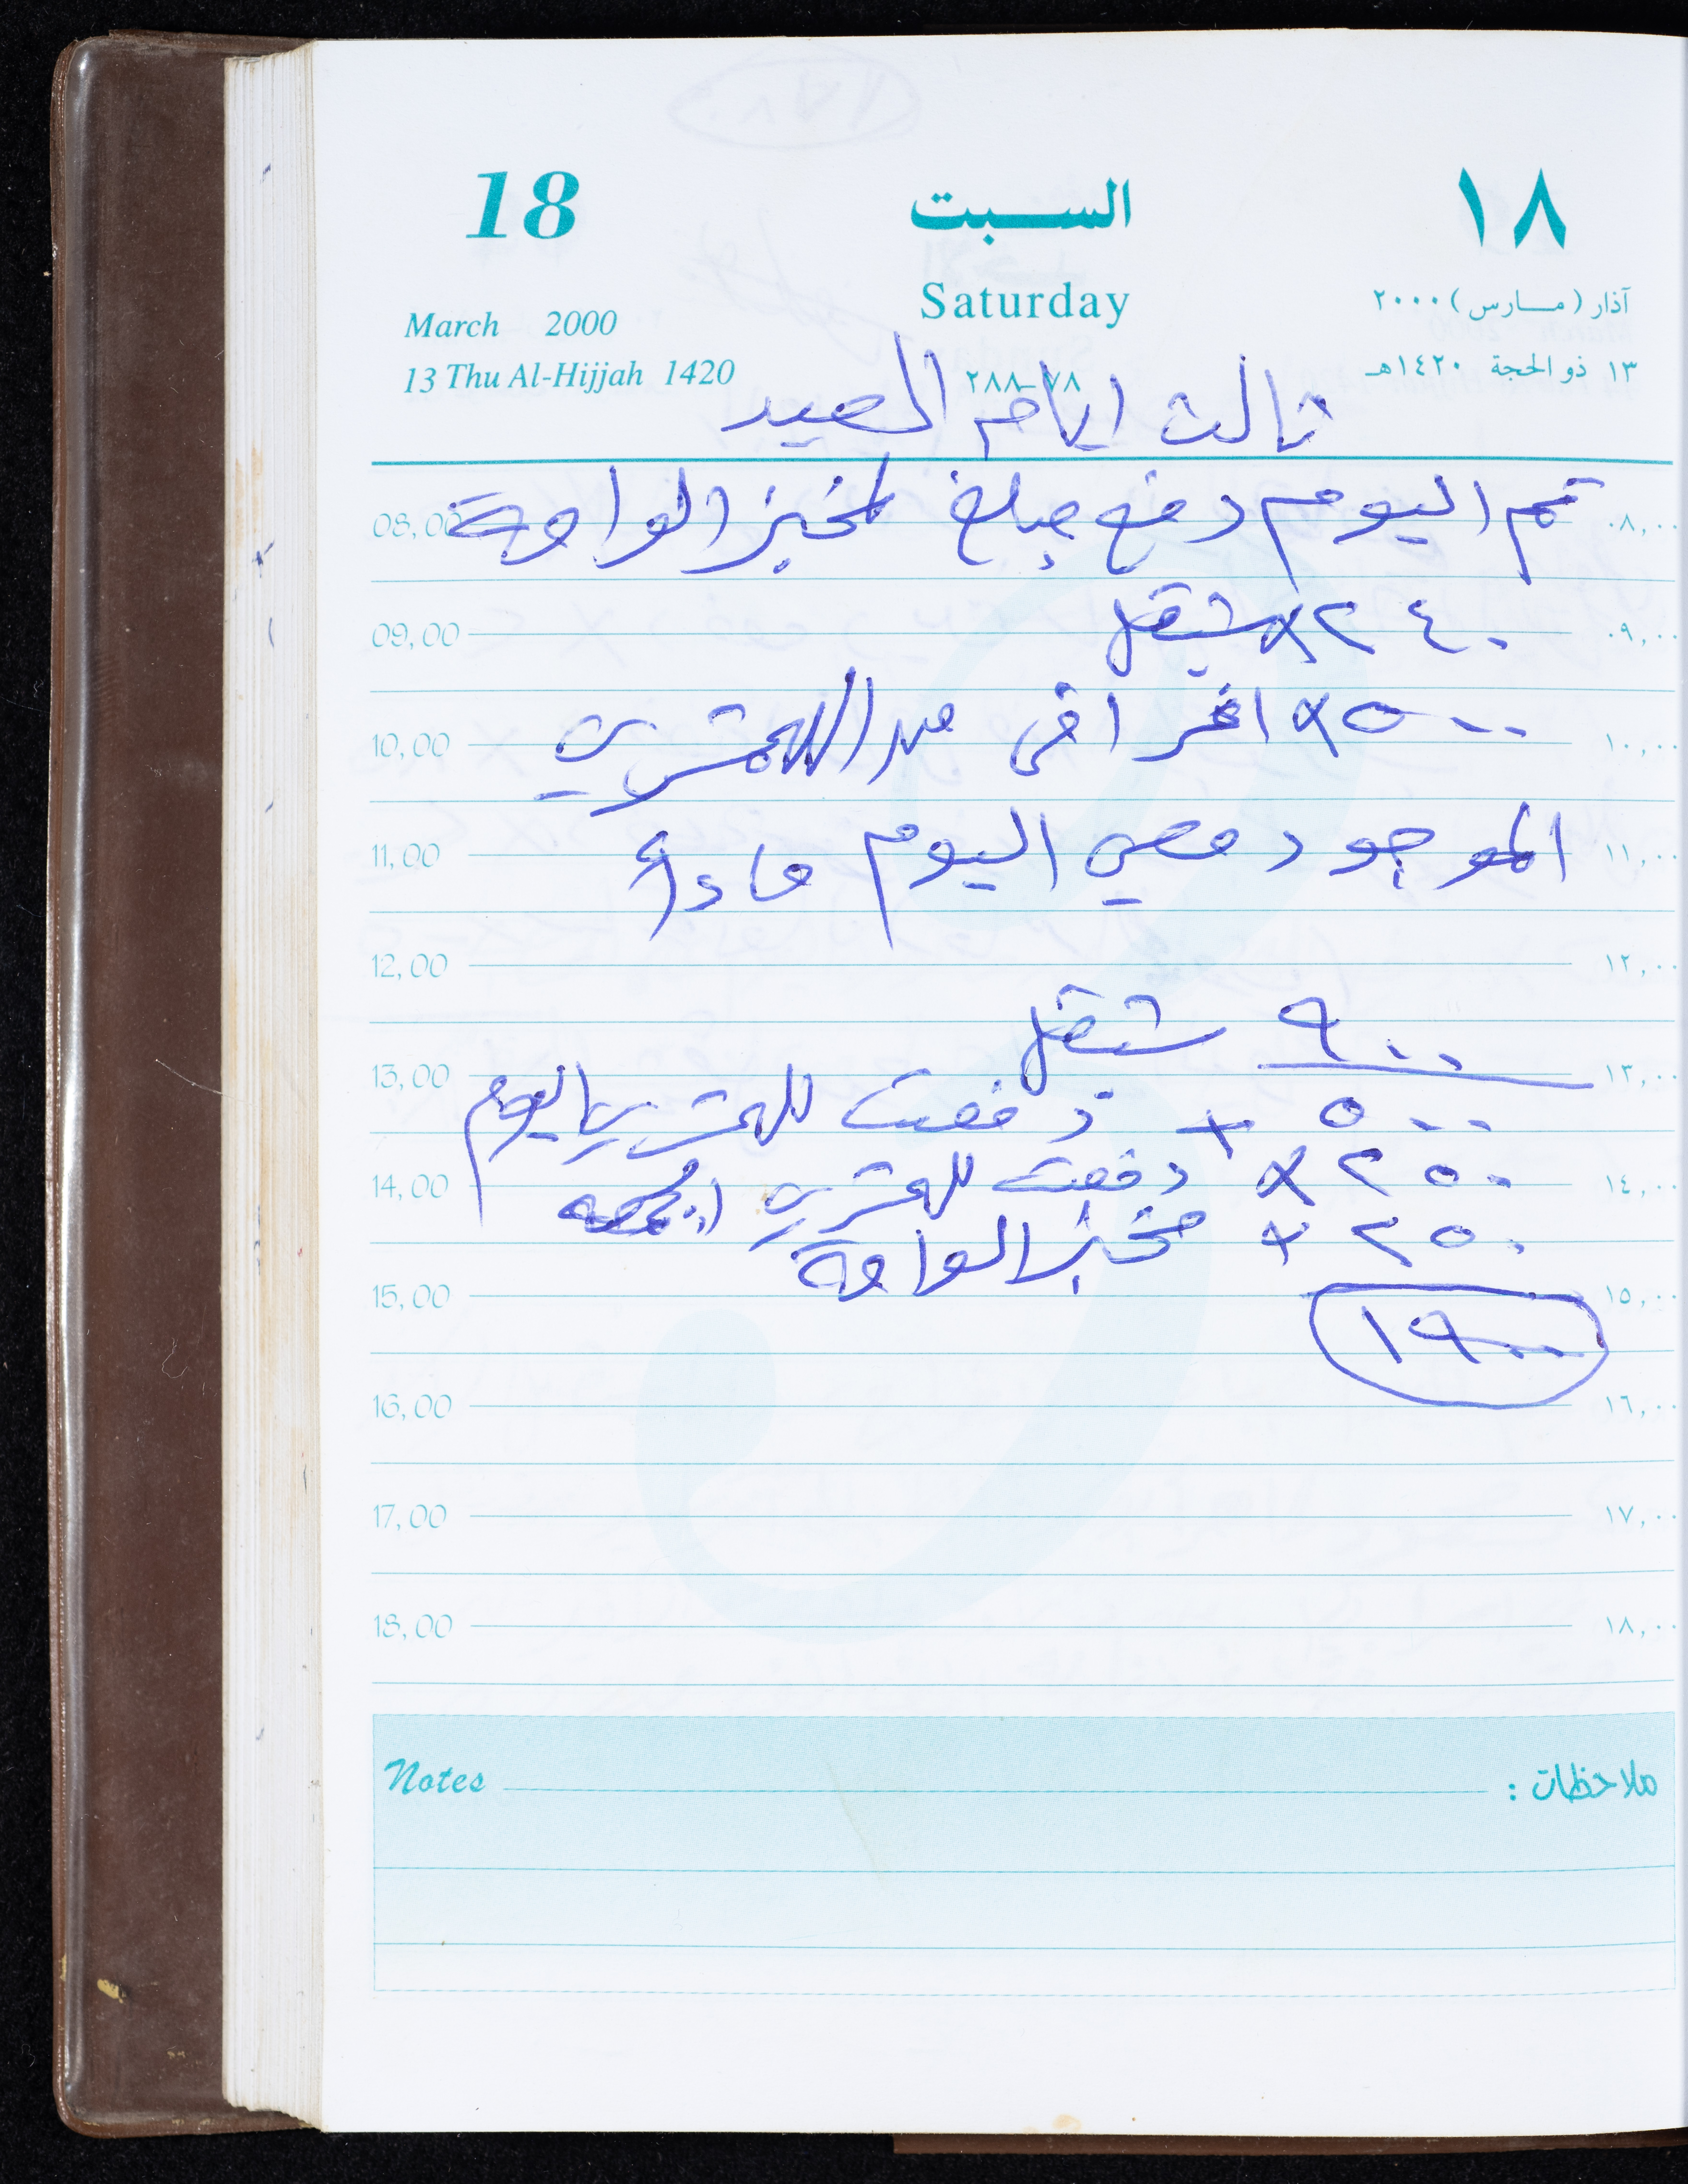 18 السبت ١٨
Saturday
March 2000 آذار (مارس) ٢٠٠٠
13 Thu Al-Hijjah 1420 ٧٨-٢٨٨ ١٣ ذو الحجة ١٤٢٠هـ
ثالث ايام العيد
08,00 تم اليوم دفع مبلغ لمخبز الواحة ٠٨,٠٠
09,00 ٢٤٠ × شيقل ٠٩,٠٠
10,00 ٥٠٠ × اخرا في ١٠,٠٠
11,00 الموجود معي اليوم مادي ١١,٠٠
12,00 ١٢,٠٠
٩٠٠ شيقل
13,00 ١٣,٠٠
٥٠٠ × دفعت اليوم
14,00 ٢٥٠ × دفعت الجمعه ١٤,٠٠
٢٥٠ × مخبز الواحة
15,00 ١٥,٠٠
١٩٠٠
16,00 ١٦,٠٠
17,00 ١٧,٠٠
18,00 ١٨,٠٠
Notes ملاحظات :